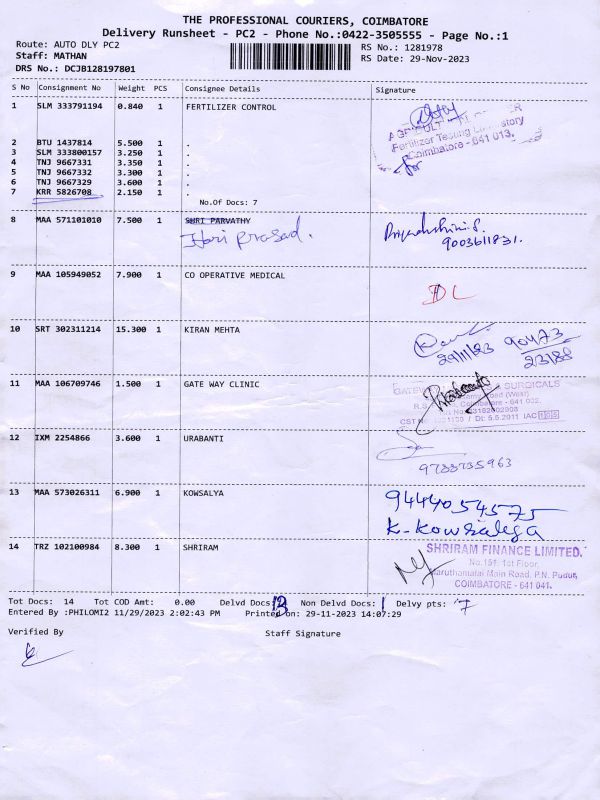 THE PROFESSIONAL COURIERS, COIMBATORE
Delivery Runsheet - PC2 - Phone No.:0422-3505555 - Page No.:1
Route: AUTO DLY PC2 RS No.: 1281978
Staff: MATHAN RS Date: 29-Nov-2023
DRS No.: DCJB128197801
S No Consignment No Weight PCS Consignee Details Signature
1 SLM 333791194 0.840 1 FERTILIZER CONTROL
Fertilizer Testing Laboratory
Coimbatore - 641 013.
for
2 BTU 1437814 5.500 1 .
3 SLM 333800157 3.250 1 .
4 TNJ 9667331 3.350 1 .
5 TNJ 9667332 3.300 1 .
6 TNJ 9667329 3.600 1 .
7 KRR 5826708 2.150 1 .
No.Of Docs: 7
8 MAA 571101010 7.500 1 SHRI PARVATHY
Hari Prasad. Priyadharshini.S.
9003611831.
9 MAA 105949052 7.900 1 CO OPERATIVE MEDICAL
DL
10 SRT 302311214 15.300 1 KIRAN MEHTA
29/11/23 90473
23188
11 MAA 106709746 1.500 1 GATE WAY CLINIC
& SURGICALS
Road (West)
Coimbatore - 641 002.
Dt: 5.5.2011 IAC 105
12 IXM 2254866 3.600 1 URABANTI
9788735963
13 MAA 573026311 6.900 1 KOWSALYA
9444054575
K-Kowsalya
14 TRZ 102100984 8.300 1 SHRIRAM
SHRIRAM FINANCE LIMITED.
No.151, 1st Floor,
Maruthamalai Main Road, P.N. Pudur,
COIMBATORE - 641 041.
Tot Docs: 14 Tot COD Amt: 0.00 Delvd Docs: 13 Non Delvd Docs: 1 Delvy pts: 7
Entered By :PHILOMI2 11/29/2023 2:02:43 PM Printed on: 29-11-2023 14:07:29
Verified By Staff Signature